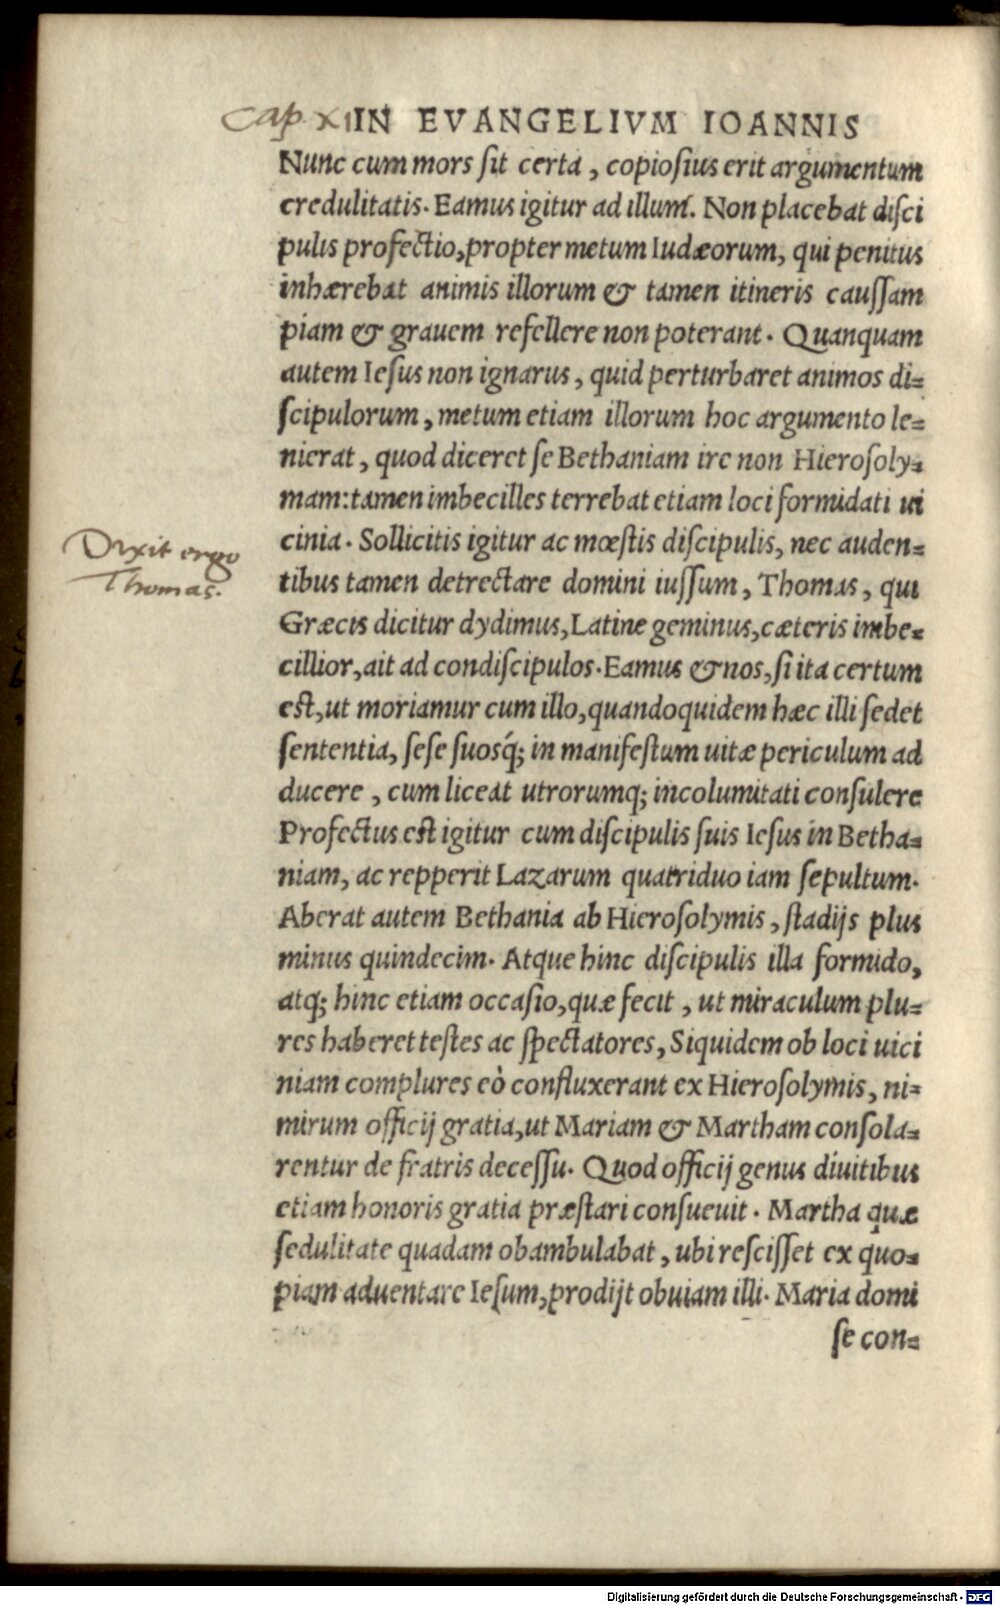 Cap XI IN EVANGELIVM IOANNIS
Nunc cum mors ſit certa, copioſius erit argumentum
credulitatis. Eamus igitur ad illum. Non placebat diſci
pulis profectio, propter metum Iudæorum, qui penitus
inhærebat animis illorum & tamen itineris cauſſam
piam & grauem refellere non poterant. Quanquam
autem Ieſus non ignarus, quid perturbaret animos di=
ſcipulorum, metum etiam illorum hoc argumento le=
nierat, quod diceret ſe Bethaniam ire non Hieroſoly=
mam: tamen imbecilles terrebat etiam loci formidati ui
cinia. Sollicitis igitur ac mœſtis diſcipulis, nec auden=
Dixit ergo
Thomas.
tibus tamen detrectare domini iuſſum, Thomas, qui
Græcis dicitur dydimus, Latine geminus, cæteris imbe=
cillior, ait ad condiſcipulos. Eamus & nos, ſi ita certum
eſt, ut moriamur cum illo, quandoquidem hæc illi ſedet
ſententia, ſeſe ſuosq́; in manifeſtum uitæ periculum ad
ducere, cum liceat utrorumq; incolumitati conſulere
Profectus eſt igitur cum diſcipulis ſuis Ieſus in Betha=
niam, ac repperit Lazarum quatriduo iam ſepultum.
Aberat autem Bethania ab Hieroſolymis, ſtadijs plus
minus quindecim. Atque hinc diſcipulis illa formido,
atq; hinc etiam occaſio, quæ fecit, ut miraculum plu=
res haberet teſtes ac ſpectatores, Siquidem ob loci uici
niam complures eò confluxerant ex Hieroſolymis, ni=
mirum officij gratia, ut Mariam & Martham conſola=
rentur de fratris deceſſu. Quod officij genus diuitibus
etiam honoris gratia præſtari conſueuit. Martha quæ
ſedulitate quadam obambulabat, ubi reſciſſet ex quo=
piam aduentare Ieſum, prodijt obuiam illi. Maria domi
ſe con=
Digitalisierung gefördert durch die Deutsche Forschungsgemeinschaft - DFG